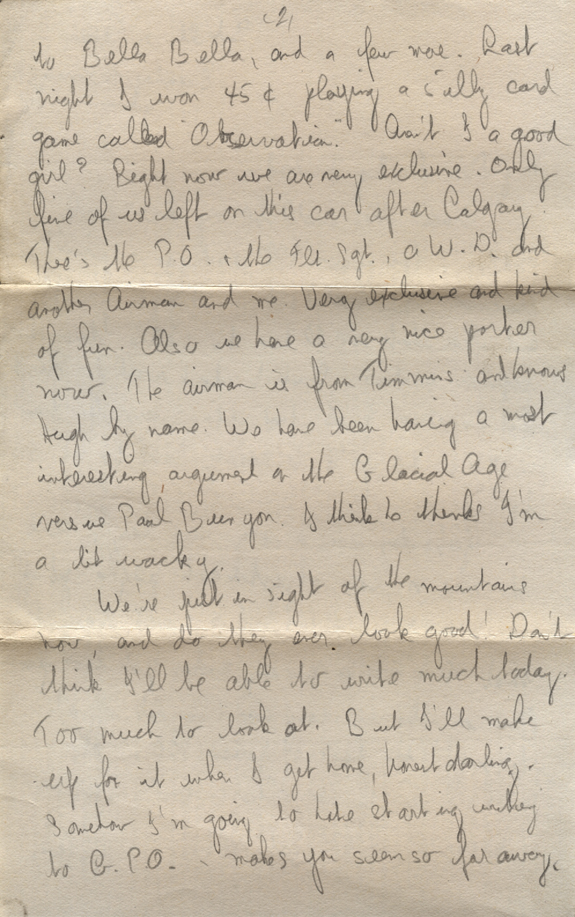 2,
to Bella Bella, and a few more. Last
night I won 45¢ playing a silly card
game called "Observation." Ain't I a good
girl? Right now we are very exclusive. Only
five of us left on this car after Calgary.
There's the P.O., the Flt. Sgt., a W.D. and
another Airman and me. Very exclusive and kind
of fun. Also we have a very nice porter
now. The airman is from Timmins and knows
Hugh by name. We have been having a most
interesting argument on the Glacial Age
versus Paul Bunyon. I think he thinks I'm
a bit wacky.
We're just in sight of the mountains
now, and do they ever look good! Don't
think I'll be able to write much today.
Too much to look at. But I'll make
up for it when I get home, honest darling.
Somehow I'm going to hate starting writing
to G.P.O. - makes you seem so far away.